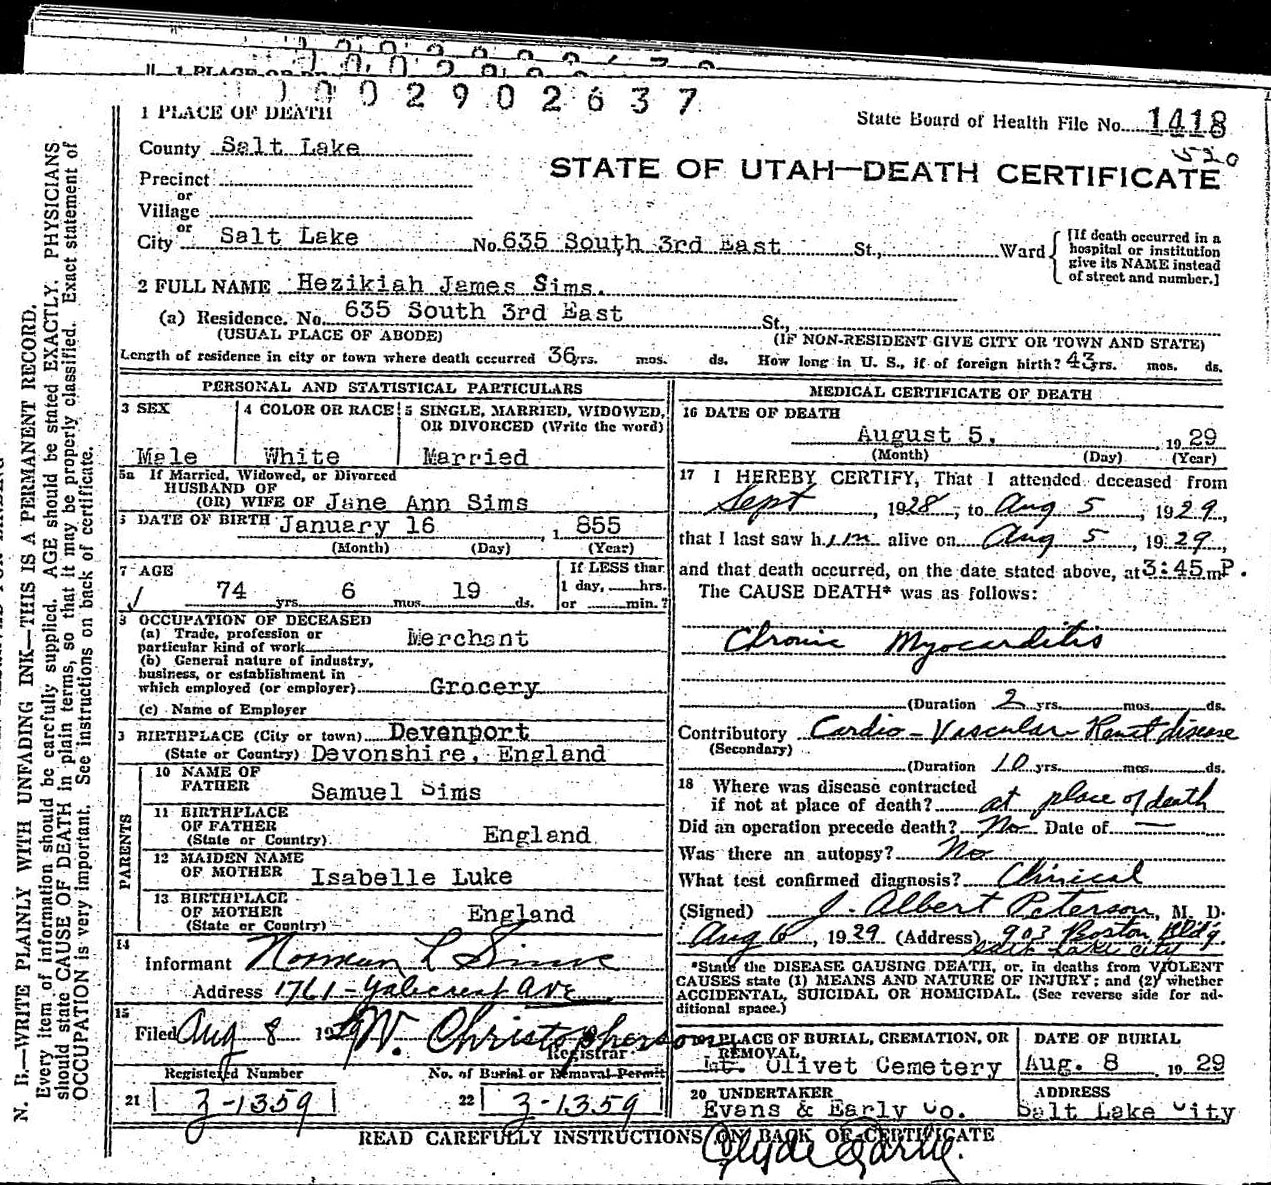 1 PLACE OF DEATH
1002902637
State Board of Health File No. 1418
520
County Salt Lake
STATE OF UTAH—DEATH CERTIFICATE
Precinct
or
Village
or
City Salt Lake No. 635 South 3rd East St., Ward
[If death occurred in a hospital or institution give its NAME instead of street and number.]
2 FULL NAME Hezikiah James Sims.
(a) Residence. No. 635 South 3rd East St.,
(USUAL PLACE OF ABODE) (IF NON-RESIDENT GIVE CITY OR TOWN AND STATE)
Length of residence in city or town where death occurred 36 yrs. mos. ds. How long in U. S., if of foreign birth? 43 yrs. mos. ds.
PERSONAL AND STATISTICAL PARTICULARS
3 SEX
Male
4 COLOR OR RACE
White
5 SINGLE, MARRIED, WIDOWED, OR DIVORCED (Write the word)
Married
5a If Married, Widowed, or Divorced
HUSBAND OF
(OR) WIFE OF Jane Ann Sims
DATE OF BIRTH January 16, 1855
(Month) (Day) (Year)
7 AGE
74 yrs 6 mos 19 ds.
If LESS than
1 day, hrs.
or min.?
8 OCCUPATION OF DECEASED
(a) Trade, profession or
particular kind of work Merchant
(b) General nature of industry,
business, or establishment in
which employed (or employer) Grocery
(c) Name of Employer
BIRTHPLACE (City or town) Devenport
(State or Country) Devonshire, England
PARENTS
10 NAME OF FATHER Samuel Sims
11 BIRTHPLACE OF FATHER
(State or Country) England
12 MAIDEN NAME OF MOTHER Isabelle Luke
13 BIRTHPLACE OF MOTHER
(State or Country) England
14
Informant Norman L Sims
Address 1761 - Yalecrest Ave
15
Filed Aug 8 1929 W. Christopherson
Registrar
Registered Number
21 3-1359
No. of Burial or Removal Permit
22 3-1359
MEDICAL CERTIFICATE OF DEATH
16 DATE OF DEATH
August 5, 1929
(Month) (Day) (Year)
17 I HEREBY CERTIFY, That I attended deceased from
Sept, 1928, to Aug 5, 1929,
that I last saw him alive on Aug 5, 1929,
and that death occurred, on the date stated above, at 3:45 m P.
The CAUSE DEATH* was as follows:
Chronic Myocarditis
(Duration 2 yrs. mos. ds.
Contributory Cardio-Vascular-Renal disease
(Secondary)
(Duration 10 yrs. mos. ds.
18 Where was disease contracted
if not at place of death? at place of death
Did an operation precede death? No Date of —
Was there an autopsy? No
What test confirmed diagnosis? Clinical
(Signed) J. Albert Peterson, M. D.
Aug 6, 1929 (Address) 903 Boston Bldg
Salt Lake City
*State the DISEASE CAUSING DEATH, or, in deaths from VIOLENT
CAUSES state (1) MEANS AND NATURE OF INJURY; and (2) whether
ACCIDENTAL, SUICIDAL OR HOMICIDAL. (See reverse side for ad-
ditional space.)
PLACE OF BURIAL, CREMATION, OR
REMOVAL
Mt. Olivet Cemetery
DATE OF BURIAL
Aug. 8 1929
20 UNDERTAKER
Evans & Early Co.
ADDRESS
Salt Lake City
READ CAREFULLY INSTRUCTIONS ON BACK OF CERTIFICATE
N. B.—WRITE PLAINLY WITH UNFADING INK—THIS IS A PERMANENT RECORD.
Every item of information should be carefully supplied. AGE should be stated EXACTLY. PHYSICIANS
should state CAUSE OF DEATH in plain terms, so that it may be properly classified. Exact statement of
OCCUPATION is very important. See instructions on back of certificate.